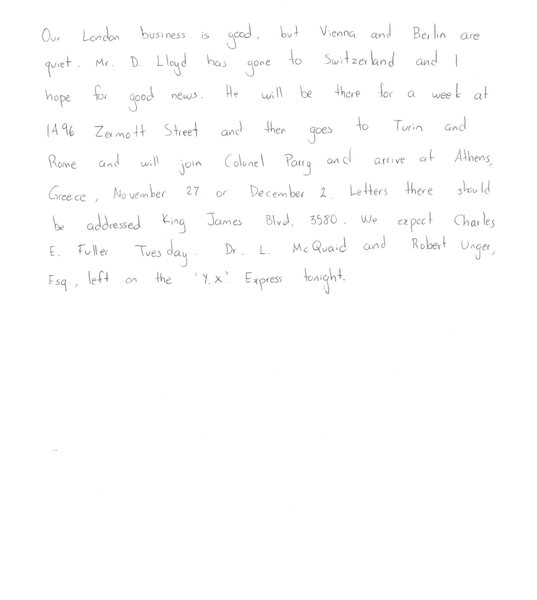 Our London business is good, but Vienna and Berlin are
quiet. Mr. D. Lloyd has gone to Switzerland and I
hope for good news. He will be there for a week at
1496 Zermott Street and then goes to Turin and
Rome and will join Colonel Parry and arrive at Athens,
Greece, November 27 or December 2. Letters there should
be addressed King James Blvd. 3580. We expect Charles
E. Fuller Tuesday. Dr. L. McQuaid and Robert Unger,
Esq., left on the 'Y.X.' Express tonight.